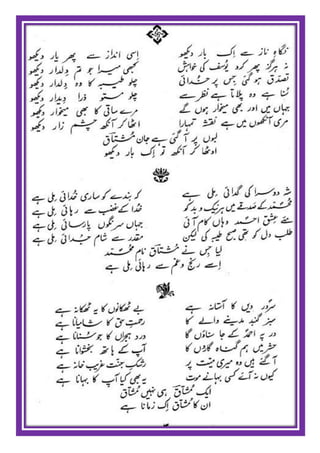 نگاہِ ناز سے اِک بار دیکھو
اسی انداز سے پھر یار دیکھو
نہ ہرگز پھر کرو یوسف کی خواہش
کبھی میرا جو تم دلدار دیکھو
تصدق ہو گئی جس پر خدائی
چلو طیبہ کا وہ دلدار دیکھو
سُنا ہے وہ پلاتا ہے نظر سے
چلو مستو ذرا دیدار دیکھو
جہاں میں اور بھی میخوار ہوں گے
مرے ساقی کا بھی میخوار دیکھو
مری آنکھوں میں ہے نقشہ تمہارا
اٹھا کر آنکھ چشمِ زار دیکھو
لبوں پر آ گئی ہے جانِ مشتاق
اوٹھا کر آنکھ تو اِک بار دیکھو
شہِ دوسرا کی گدائی ملی ہے
کہ بندے کو ساری خدائی ملی ہے
محمد کے صدقے میں ہر نیک و بد کو
خدا کے غضب سے رہائی ملی ہے
عشقِ احمد وہاں کام آئی
جہاں سرنگوں پارسائی ملی ہے
طلب دل کو تھی صبحِ طیبہ کی لیکن
مقدر سے شامِ جدائی ملی ہے
لیا جس نے مشتاق نامِ محمد
اسے رنج و غم سے رہائی ملی ہے
سرورِ دیں کا آستانہ ہے
بے ٹھکانوں کا یہ ٹھکانہ ہے
سبز گنبد مدینے والے کا
رحمتِ حق کا شامیانا ہے
در پہ احمد کے جا سناؤں گا
دردِ ہجراں کا جو سنانا ہے
حشر میں ہم گناہ گاروں کا
آپ کے ہاتھ بخشوانا ہے
آ گئے ہیں وہ میری میت پر
رشکِ جنت غریب خانہ ہے
کیوں نہ آئے کسی بہانے موت
یہ بھی کیا آپ کا بہانا ہے
ایک مشتاق ہی نہیں مشتاق
ان کا مشتاق اِک زمانا ہے